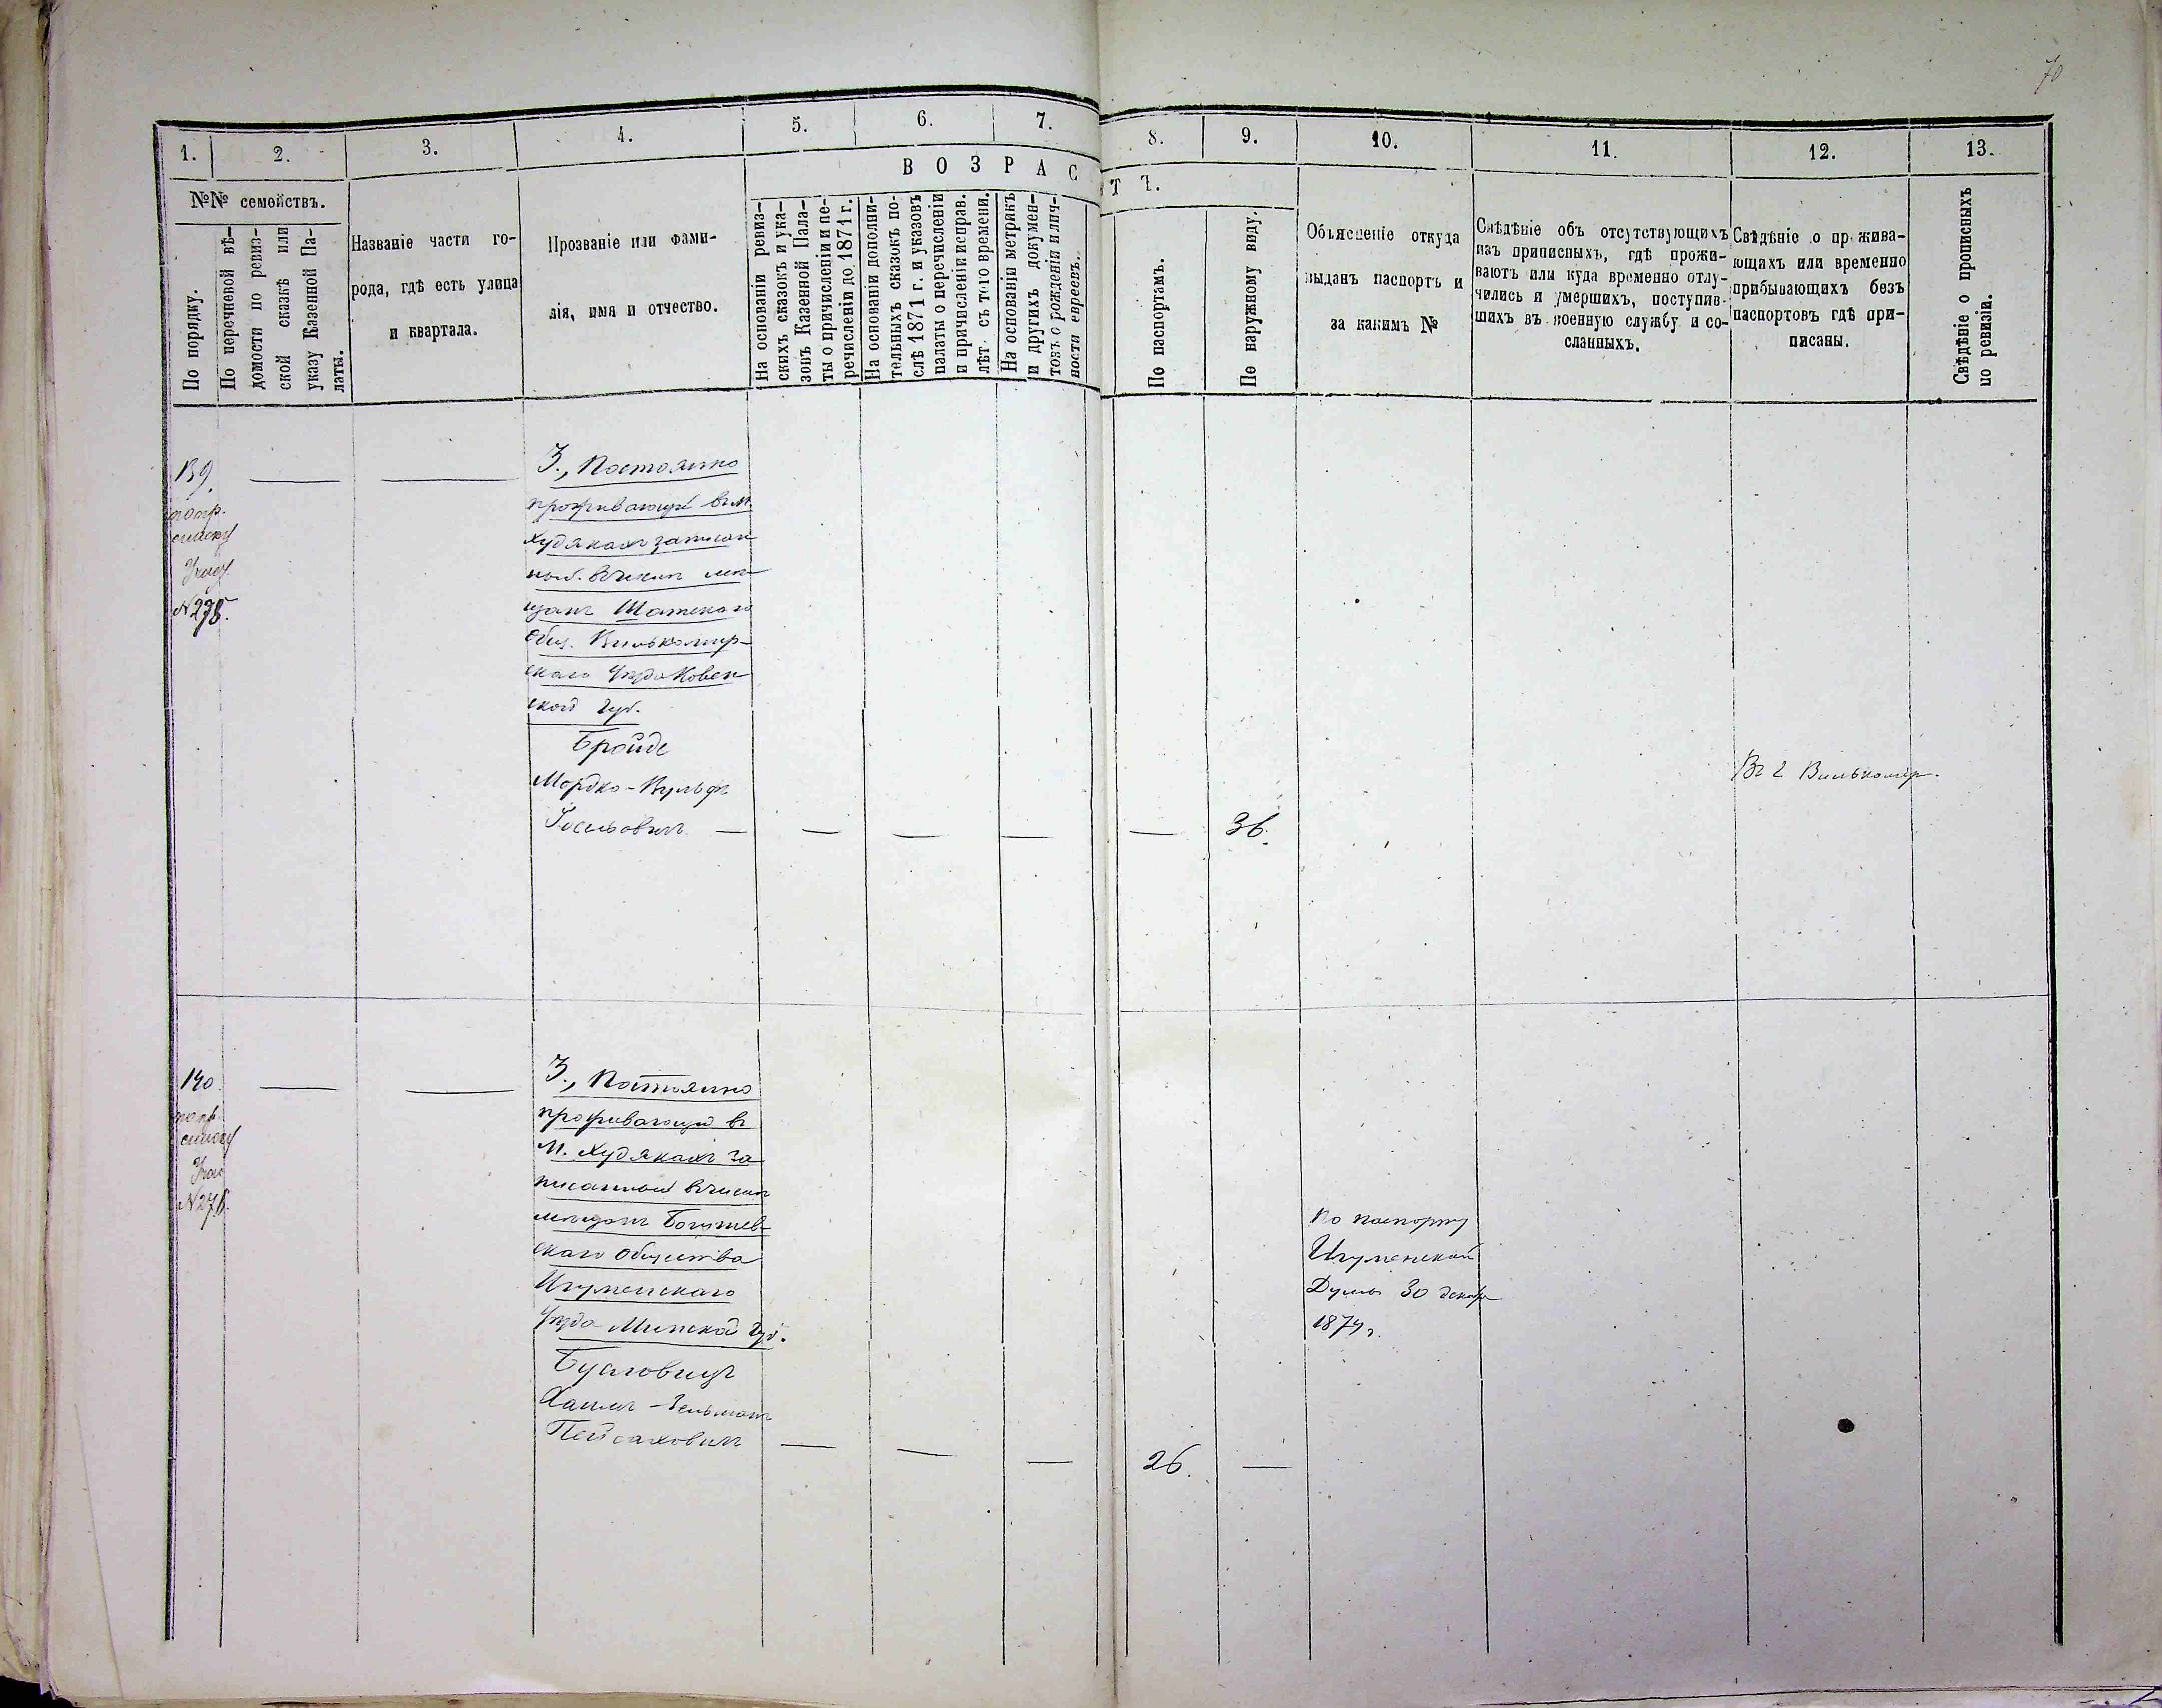 70
1. 2. 3. 4. 5. 6. 7. 8. 9. 10. 11. 12. 13.
№№ семействъ.
По порядку.
По перечневой вѣ-
домости по ревиз-
ской сказкѣ или
указу Казенной Па-
латы.
Названіе части го-
рода, гдѣ есть улица
и квартала.
Прозваніе или фами-
лія, имя и отчество.
ВОЗРАСТЪ.
На основаніи ревиз-
скихъ сказокъ и ука-
зовъ Казенной Пала-
ты о причисленіи и пе-
речисленіи до 1871 г.
На основаніи дополни-
тельныхъ сказокъ по-
слѣ 1871 г. и указовъ
палаты о перечисленіи
и причисленіи исправ.
лѣт. съ того времени.
На основаніи метрикъ
и другихъ докумен-
товъ о рожденіи и лич-
ности евреевъ.
По паспортамъ.
По наружному виду.
Объясненіе откуда
выданъ паспортъ и
за какимъ №
Свѣдѣніе объ отсутствующихъ
изъ приписныхъ, гдѣ прожи-
ваютъ или куда временно отлу-
чились и умершихъ, поступив-
шихъ въ военную службу и со-
сланныхъ.
Свѣдѣніе о прожива-
ющихъ или временно
прибывающихъ безъ
паспортовъ гдѣ при-
писаны.
Свѣдѣніе о прописныхъ
по ревизіи.
139.
по пр.
списку
№ 278.
3., Постоянно
проживающій въ М.
Худякахъ записан
ный въ числѣ мѣ-
щанъ Шатскаго
Общ. Вилькомир-
скаго Уѣзда Ковен
ской Губ.
Бройде
Мордко-Вульфъ
Іосиовичъ — — — — — 36.
Въ г Вилькомір.
140
по пр
списку
№ 276.
3., Постоянно
проживающій въ
М. Худякахъ за
писанный въ числѣ
мѣщанъ
скаго Общества
Игуменскаго
Уѣзда Минской Губ.
Хаимъ-Зельманъ
Пейсаховичъ — — — 26. —
по паспорту
Игуменской
Думы 30 декабр
1874 г.